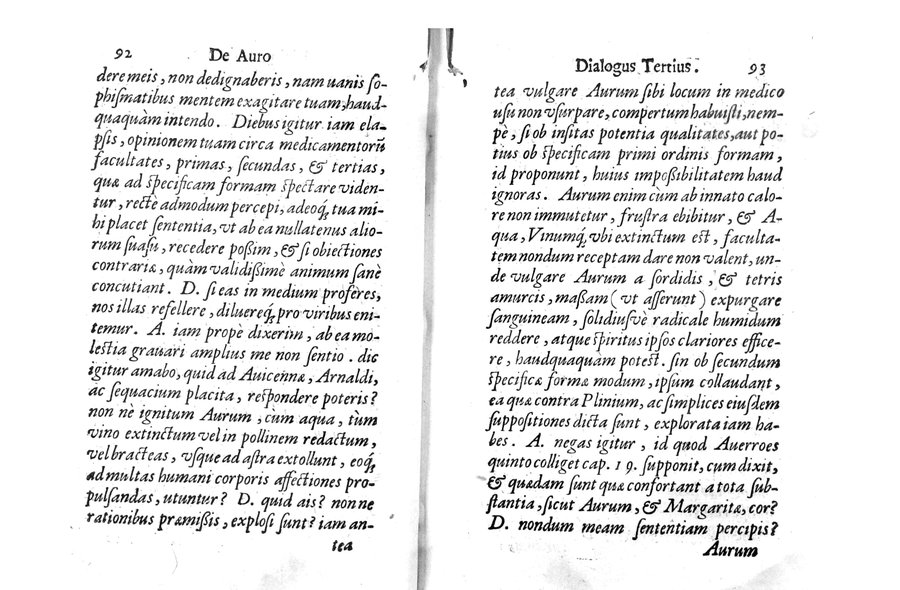 92 De Auro
dere meis, non dedignaberis, nam uanis ſo-
phiſmatibus mentem exagitare tuam, haud-
quaquàm intendo. Diebus igitur iam ela-
pſis, opinionem tuam circa medicamentorū
facultates, primas, secundas, & tertias,
quæ ad ſpecificam formam ſpectare viden-
tur, rectè admodum percepi, adeoq́, tua mi-
hi placet ſententia, vt ab ea nullatenus alio-
rum ſuaſu, recedere poßim, & ſi obiectiones
contrariæ, quàm validißimè animum ſanè
concutiant. D. ſi eas in medium proferes,
nos illas refellere, diluereq́, pro viribus eni-
temur. A. iam propè dixerim, ab ea mo-
leſtia grauari amplius me non ſentio. dic
igitur amabo, quid ad Auicennæ, Arnaldi,
ac ſequacium placita, reſpondere poteris?
non nè ignitum Aurum, cùm aqua, tùm
vino extinctum vel in pollinem redactum,
vel bracteas, vſque ad aſtra extollunt, eoq́,
ad multas humani corporis affectiones pro-
pulſandas, utuntur? D. quid ais? non ne
rationibus præmißis, exploſi ſunt? iam an-
tea
Dialogus Tertius. 93
tea vulgare Aurum ſibi locum in medico
uſu non vſurpare, compertum habuiſti, nem-
pè, ſi ob inſitas potentia qualitates, aut po-
tius ob ſpecificam primi ordinis formam,
id proponunt, huius impoßibilitatem haud
ignoras. Aurum enim cùm ab innato calo-
re non immutetur, fruſtra ebibitur, & A-
qua, Vinumq́, vbi extinctum est, faculta-
tem nondum receptam dare non valent, un-
de vulgare Aurum a ſordidis, & tetris
amurcis, maßam (vt aſſerunt) expurgare
ſanguineam, ſolidiuſvè radicale humidum
reddere, atque ſpiritus ipſos clariores effice-
re, haudquaquàm potest. ſin ob ſecundum
ſpecificæ formæ modum, ipſum collaudant,
ea quæ contra Plinium, ac ſimplices eiuſdem
ſuppoſitiones dicta ſunt, explorata iam ha-
bes. A. negas igitur, id quod Auerroes
quinto colliget cap. 19. ſupponit, cum dixit,
& quædam ſunt quæ confortant a tota ſub-
ſtantia, ſicut Aurum, & Margaritæ, cor?
D. nondum meam ſententiam percipis?
Aurum